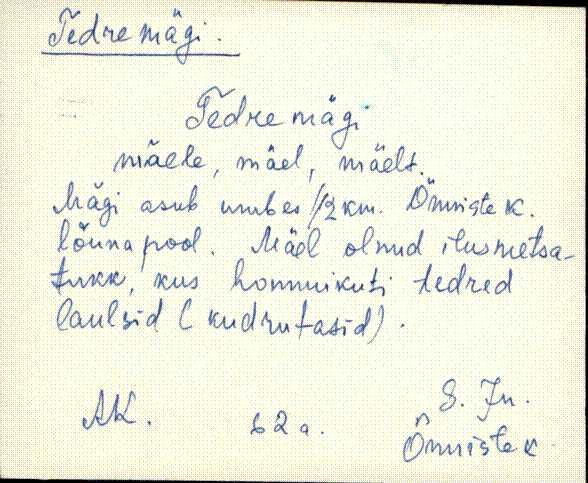 Tedre mägi.
Tedre mägi
mäele, mäel, mäelt.
Mägi asub umbes 1/2 km. Õmniste k.
lõuna pool. Mäel olnud ilus metsa-
tukk, kus hommikuti tedred
laulsid (kudrutasid).
AK. 62 a. S. Jn.
Õmniste k.